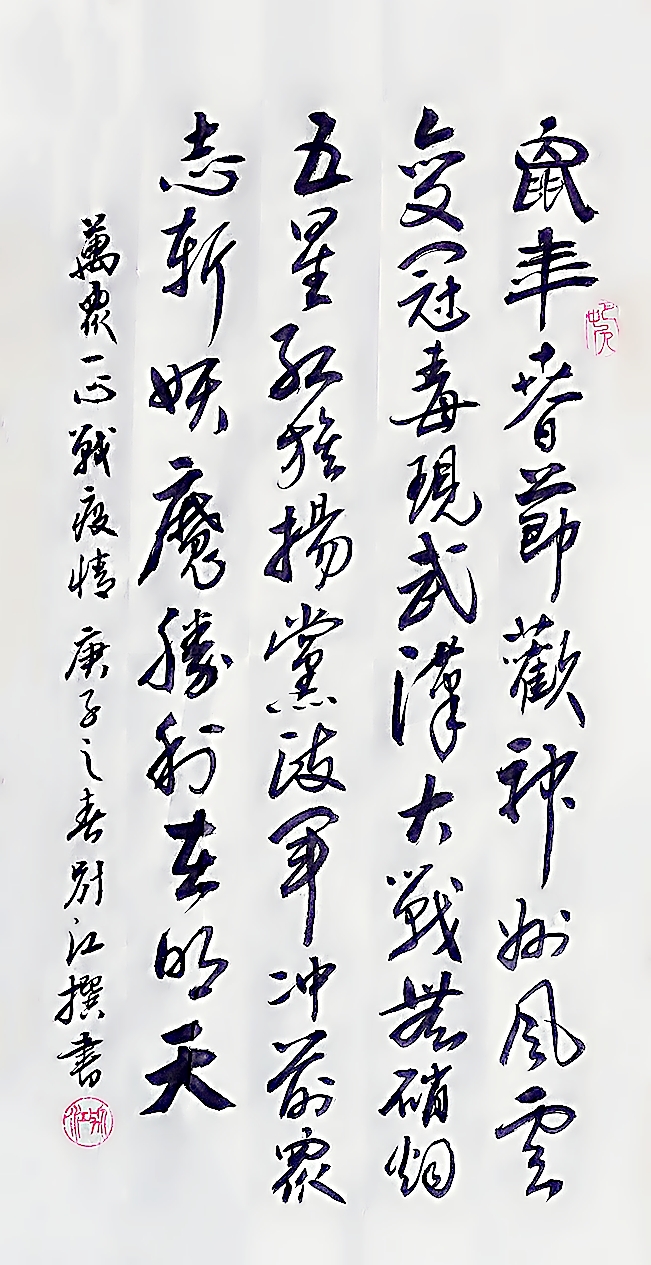 鼠年春節歡神州風雲
突變冠毒現武漢大戰無硝烟
五星紅旗揚黨政軍冲前眾
志斬妖魔勝利在明天
萬眾一心戰疫情 庚子之春 江撰書